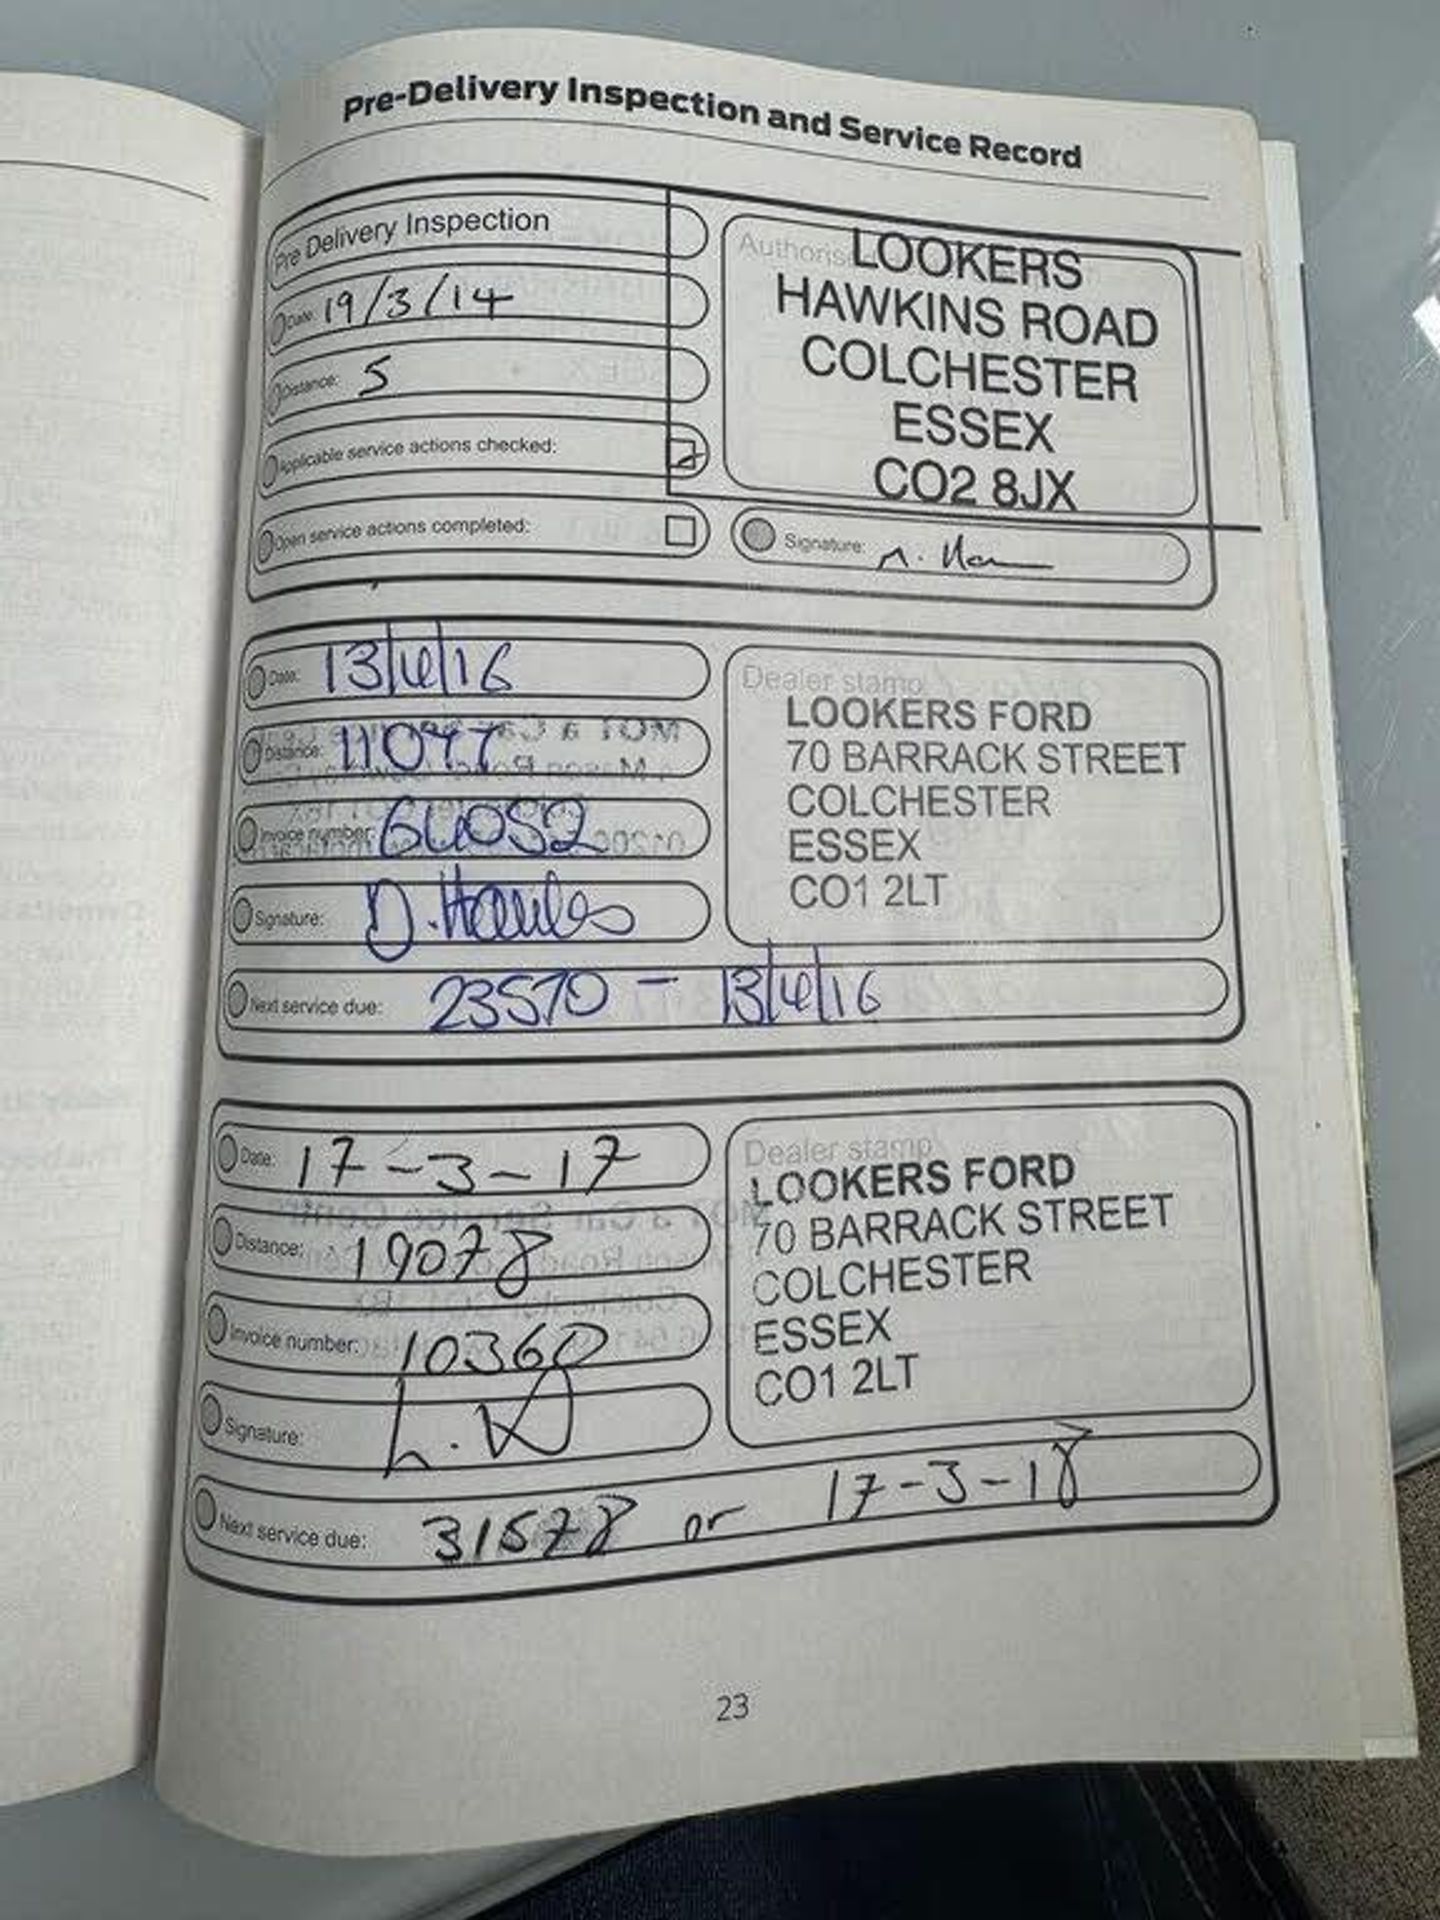 Pre-Delivery Inspection and Service Record
Pre Delivery Inspection
Date: 19/3/14
Distance: 5
Applicable service actions checked:
Open service actions completed:
LOOKERS
HAWKINS ROAD
COLCHESTER
ESSEX
CO2 8JX
Signature:
Date: 13/4/16
Distance: 11077
Invoice number: 64052
Signature:
Dealer stamp
LOOKERS FORD
70 BARRACK STREET
COLCHESTER
ESSEX
CO1 2LT
Next service due: 23570 - 13/4/16
Date: 17-3-17
Distance: 19078
Invoice number: 10360
Signature:
Dealer stamp
LOOKERS FORD
70 BARRACK STREET
COLCHESTER
ESSEX
CO1 2LT
Next service due: 31578 or 17-3-18
23